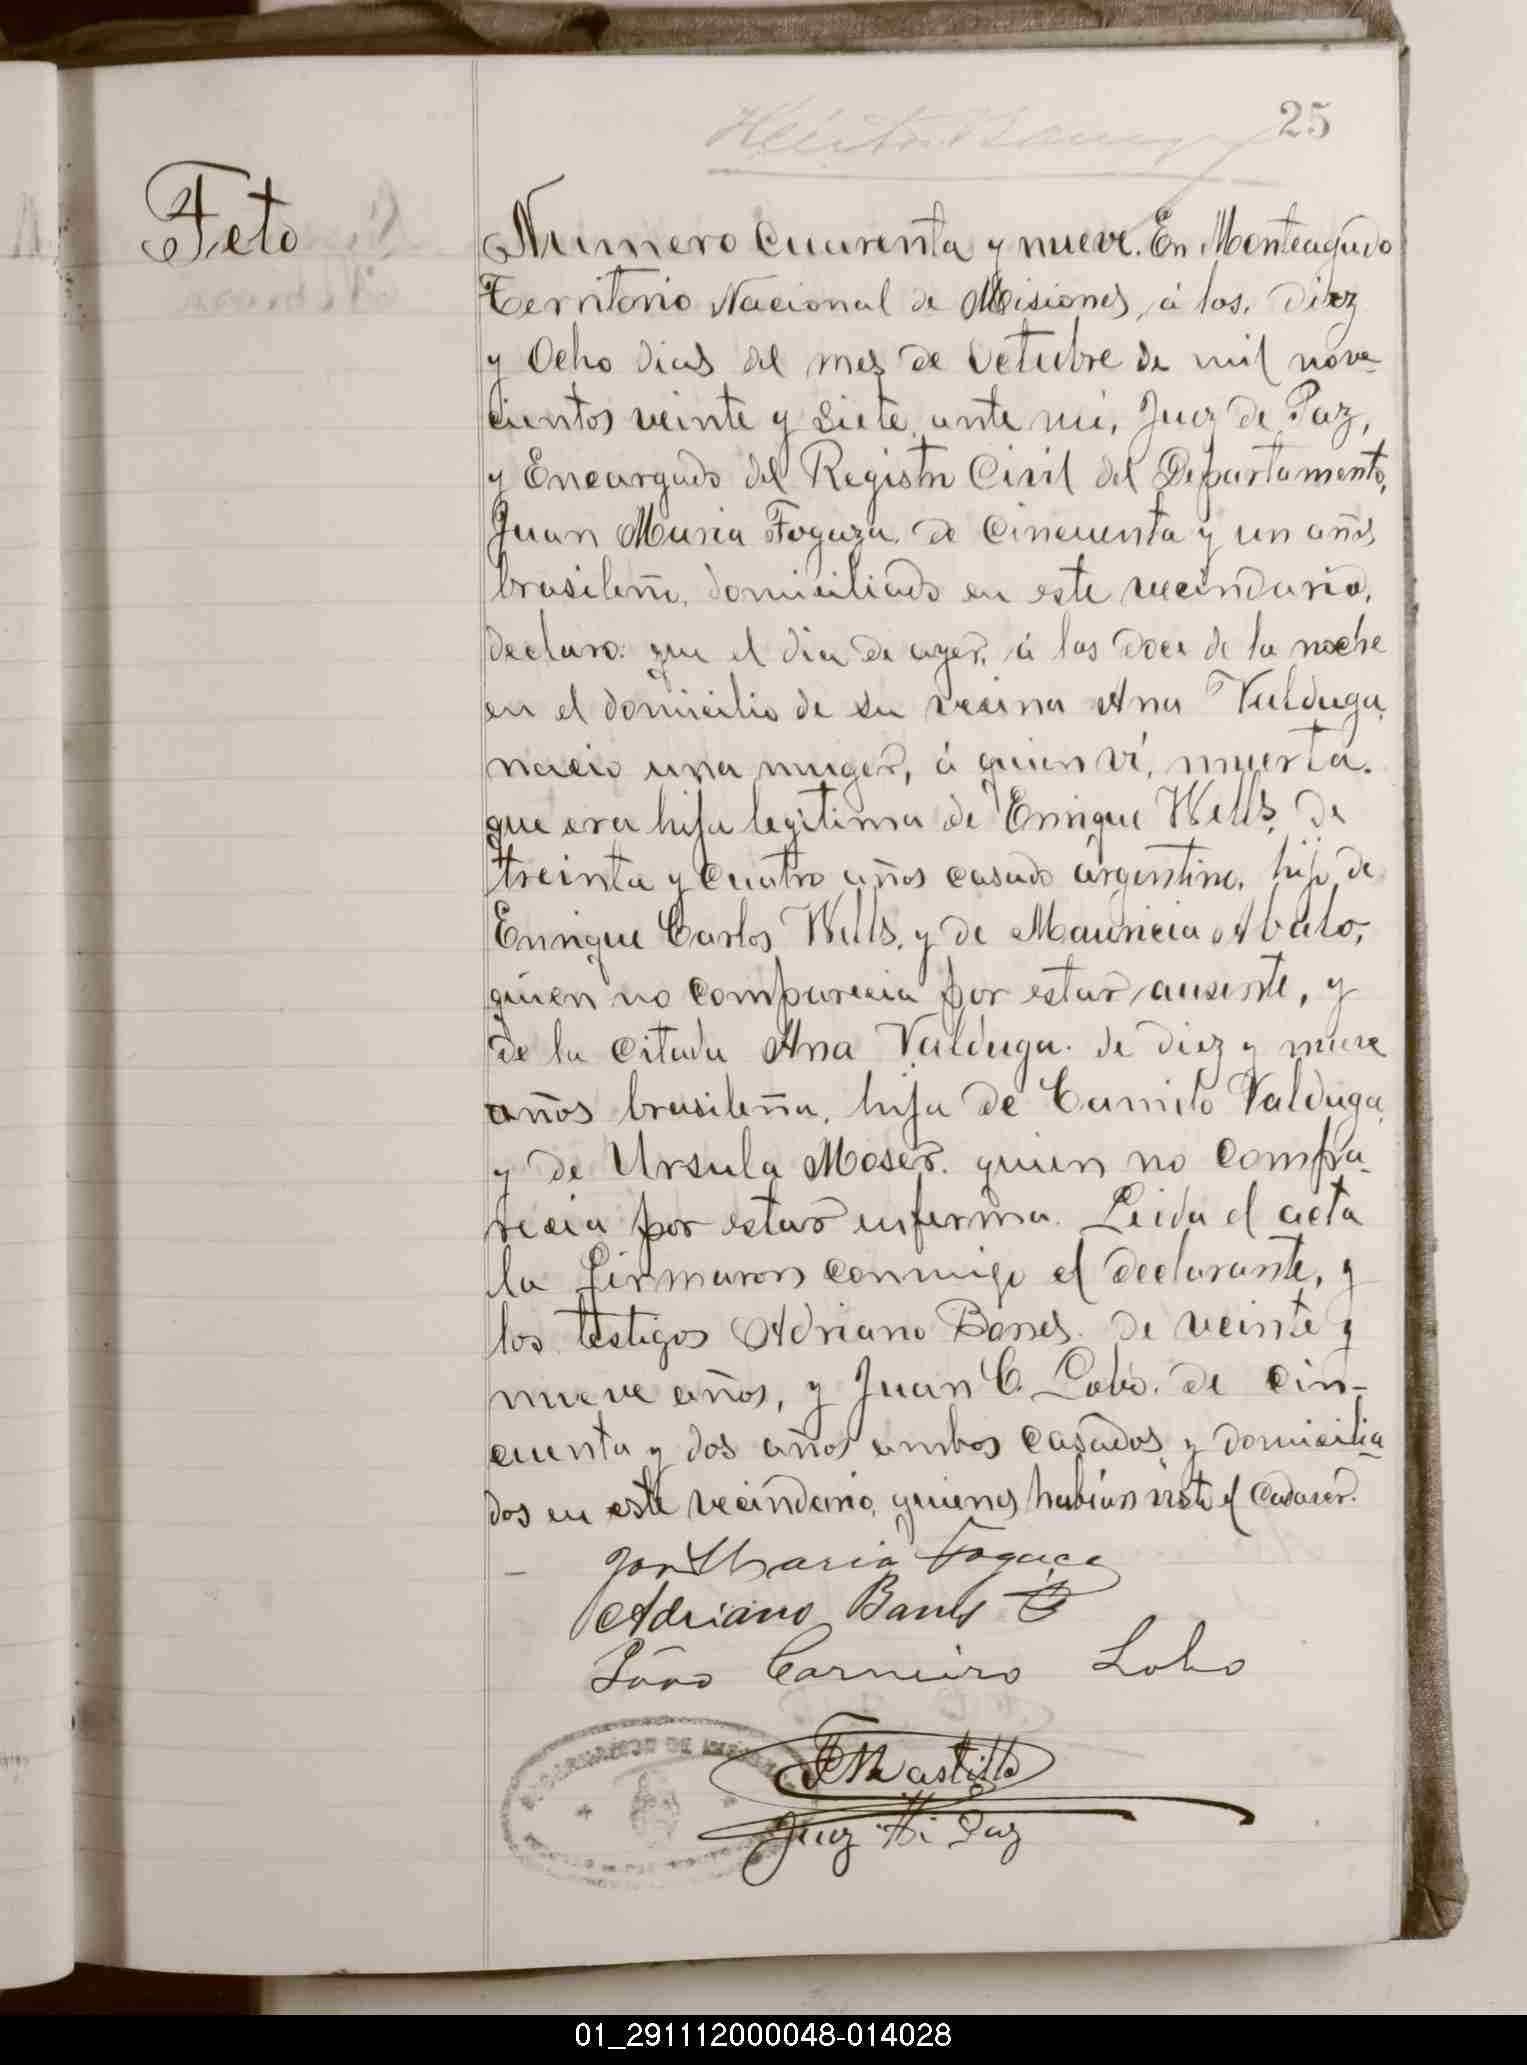 25
Feto
Numero cuarenta y nueve. En Monteagudo
Territorio Nacional de Misiones, á los, diez
y Ocho dias del mes de Octubre de mil nove-
cientos veinte y siete, ante mi, Juez de Paz,
y Encargado del Registro Civil del Departamento,
Juan Maria Fogaza, de cincuenta y un años
brasileño, domiciliado en este vecindario,
declaro: que el dia de ayer, á las doce de la noche
en el domicilio de su vecina Ana Valduga,
nacio una muger, á quien vi, muerta.
que era hija legitima de Enrique Wells, de
treinta y cuatro años casado argentino, hijo de
Enrique Carlos Wells, y de Mauricia Abalo,
quien no comparecia por estar ausente, y
de la citada Ana Valduga. de diez y nueve
años brasileña, hija de Camilo Valduga,
y de Ursula Moser. quien no compa-
recia por estar enferma. Leida el acta
la firmaron conmigo el declarante, y
los testigos Adriano Bones. de veinte y
nueve años, y Juan C. Lobo. de cin-
cuenta y dos años ambos casados y domicilia-
dos en este vecindario, quienes habian visto el cadaver.
Maria Fogaça
Adriano Banes
João Carneiro Lobo
Castillo
Juez de Paz
01_291112000048-014028